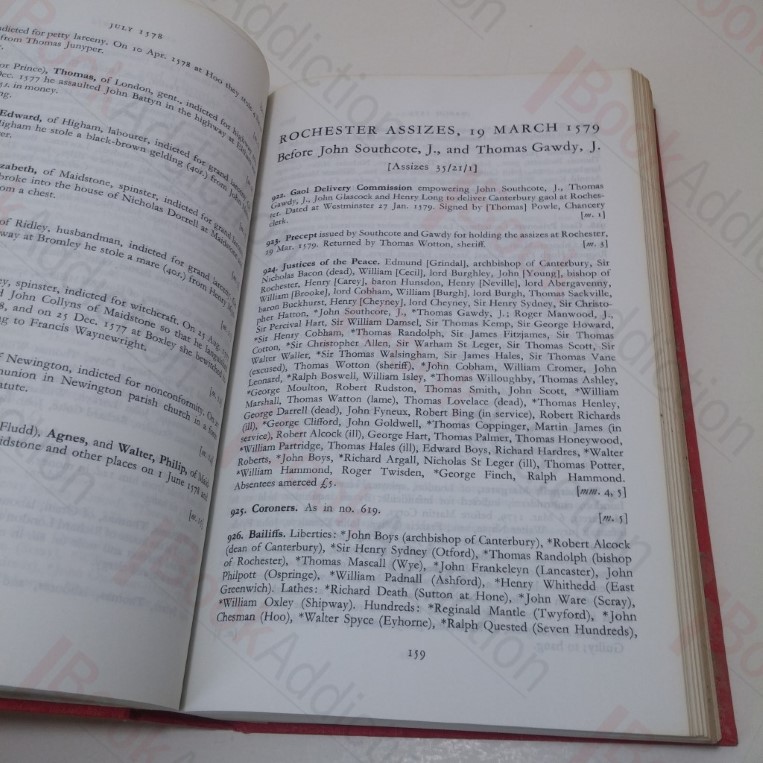 JULY 1578
indicted for petty larceny. On 10 Apr. 1578 at Hoo they
from Thomas Junyper.
or Prince), Thomas, of London, gent., indicted for highway
Dec. 1577 he assaulted John Battyn in the highway at
in money.
Edward, of Higham, labourer, indicted for grand larceny.
Higham he stole a black-brown gelding (40s.) from John
of Maidstone, spinster, indicted for grand
broke into the house of Nicholas Dorrell at Maidstone
from a chest.
of Ridley, husbandman, indicted for grand larceny.
at Bromley he stole a mare (40s.) from Henry
spinster, indicted for witchcraft. On 25 Aug.
John Collyns of Maidstone so that he languished
and on 25 Dec. 1577 at Boxley she bewitched
to Francis Waynewright.
of Newington, indicted for nonconformity. On
in Newington parish church
Fludd), Agnes, and Walter, Philip, of
and other places on 1 June 1578 and
ROCHESTER ASSIZES, 19 MARCH 1579
Before John Southcote, J., and Thomas Gawdy, J.
[Assizes 35/21/1]
922. Gaol Delivery Commission empowering John Southcote, J., Thomas
Gawdy, J., John Glascock and Henry Long to deliver Canterbury gaol at Roches-
ter. Dated at Westminster 27 Jan. 1579. Signed by [Thomas] Powle, Chancery
clerk. [m. 1]
923. Precept issued by Southcote and Gawdy for holding the assizes at Rochester,
19 Mar. 1579. Returned by Thomas Wotton, sheriff. [m. 3]
924. Justices of the Peace. Edmund [Grindal], archbishop of Canterbury, Sir
Nicholas Bacon (dead), William [Cecil], lord Burghley, John [Young], bishop of
Rochester, Henry [Carey], baron Hunsdon, Henry [Neville], lord Abergavenny,
William [Brooke], lord Cobham, William [Burgh], lord Burgh, Thomas Sackville,
baron Buckhurst, Henry [Cheyney], lord Cheyney, Sir Henry Sydney, Sir Christo-
pher Hatton, *John Southcote, J., *Thomas Gawdy, J.; Roger Manwood, J.,
Sir Percival Hart, Sir William Damsel, Sir Thomas Kemp, Sir George Howard,
*Sir Henry Cobham, *Thomas Randolph, Sir James Fitzjames, Sir Thomas
Cotton, *Sir Christopher Allen, Sir Warham St Leger, Sir Thomas Scott, Sir
Walter Waller, *Sir Thomas Walsingham, Sir James Hales, Sir Thomas Vane
(excused), Thomas Wotton (sheriff), *John Cobham, William Cromer, John
Leonard, *Ralph Boswell, William Isley, *Thomas Willoughby, Thomas Ashley,
*George Moulton, Robert Rudston, Thomas Smith, John Scott, *William
Marshall, Thomas Watton (lame), Thomas Lovelace (dead), *Thomas Henley,
George Darrell (dead), John Fyneux, Robert Bing (in service), Robert Richards
(ill), *George Clifford, John Goldwell, *Thomas Coppinger, Martin James (in
service), Robert Alcock (ill), George Hart, Thomas Palmer, Thomas Honeywood,
*William Partridge, Thomas Hales (ill), Edward Boys, Richard Hardres, *Walter
Roberts, *John Boys, *Richard Argall, Nicholas St Leger (ill), Thomas Potter,
*William Hammond, Roger Twisden, *George Finch, Ralph Hammond.
Absentees amerced £5. [mm. 4, 5]
925. Coroners. As in no. 619. [m. 5]
926. Bailiffs. Liberties: *John Boys (archbishop of Canterbury), *Robert Alcock
(dean of Canterbury), *Sir Henry Sydney (Otford), *Thomas Randolph (bishop
of Rochester), *Thomas Mascall (Wye), *John Frankeleyn (Lancaster), John
Philpott (Ospringe), *William Padnall (Ashford), *Henry Whithedd (East
Greenwich). Lathes: *Richard Death (Sutton at Hone), *John Ware (Scray),
*William Oxley (Shipway). Hundreds: *Reginald Mantle (Twyford), *John
Chesman (Hoo), *Walter Spyce (Eyhorne), *Ralph Quested (Seven Hundreds),
159